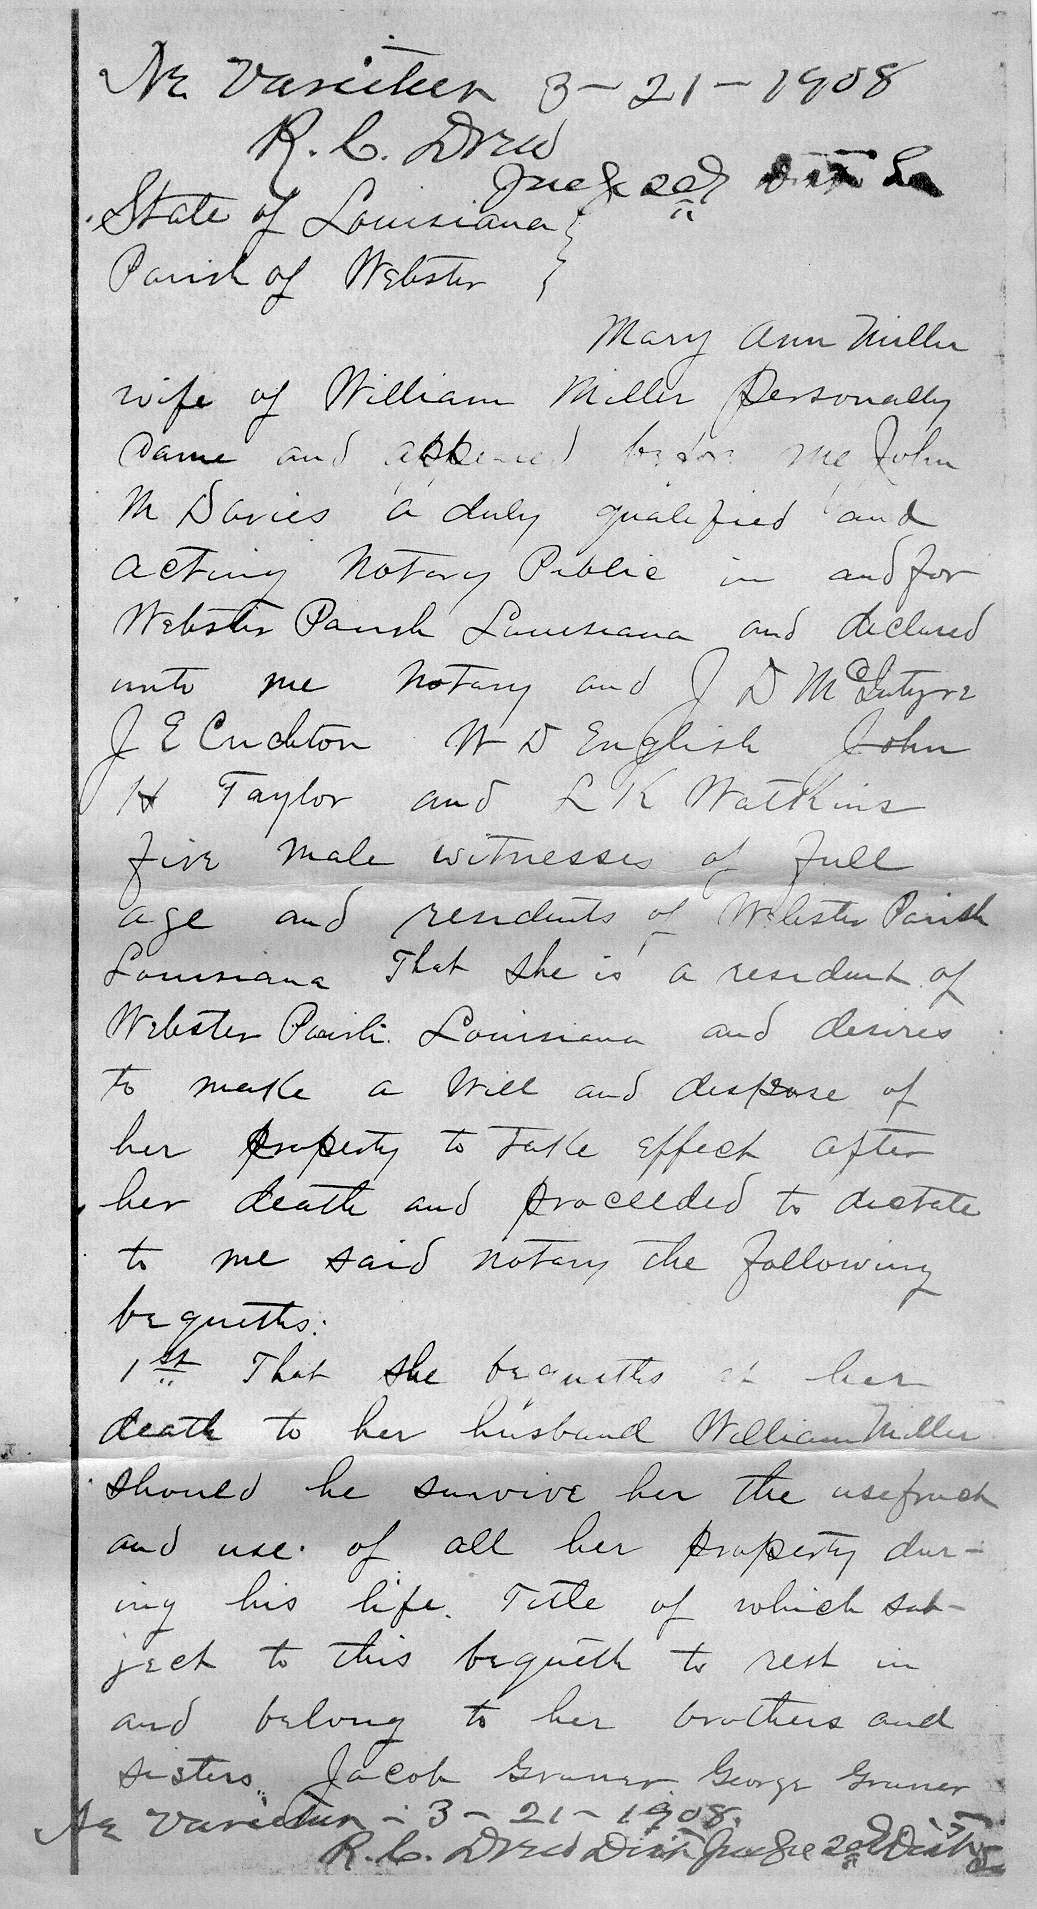 Ne Varietur 3-21-1908
R. C. Drew
Judge 2d Dist La
State of Louisiana
Parish of Webster
Mary Ann Miller
wife of William Miller personally
came and appeared before me John
M Davies a duly qualified and
acting Notary Public in and for
Webster Parish Louisiana and declared
unto me Notary and J D McIntyre
J E Crichton W D English John
H Taylor and L K Watkins
five male witnesses of full
age and residents of Webster Parish
Louisiana That she is a resident of
Webster Parish Louisiana and desires
to make a Will and dispose of
her property to take effect after
her death and proceeded to dictate
to me said notary the following
bequeths:
1st That she bequeths at her
death to her husband William Miller
should he survive her the usefruct
and use of all her property dur-
ing his life. Title of which sub-
ject to this bequeth to rest in
and belong to her brothers and
sisters, Jacob Gruner George Gruner
Ne Varietur - 3-21-1908.
R. C. Drew Dist Judge 2d Dist